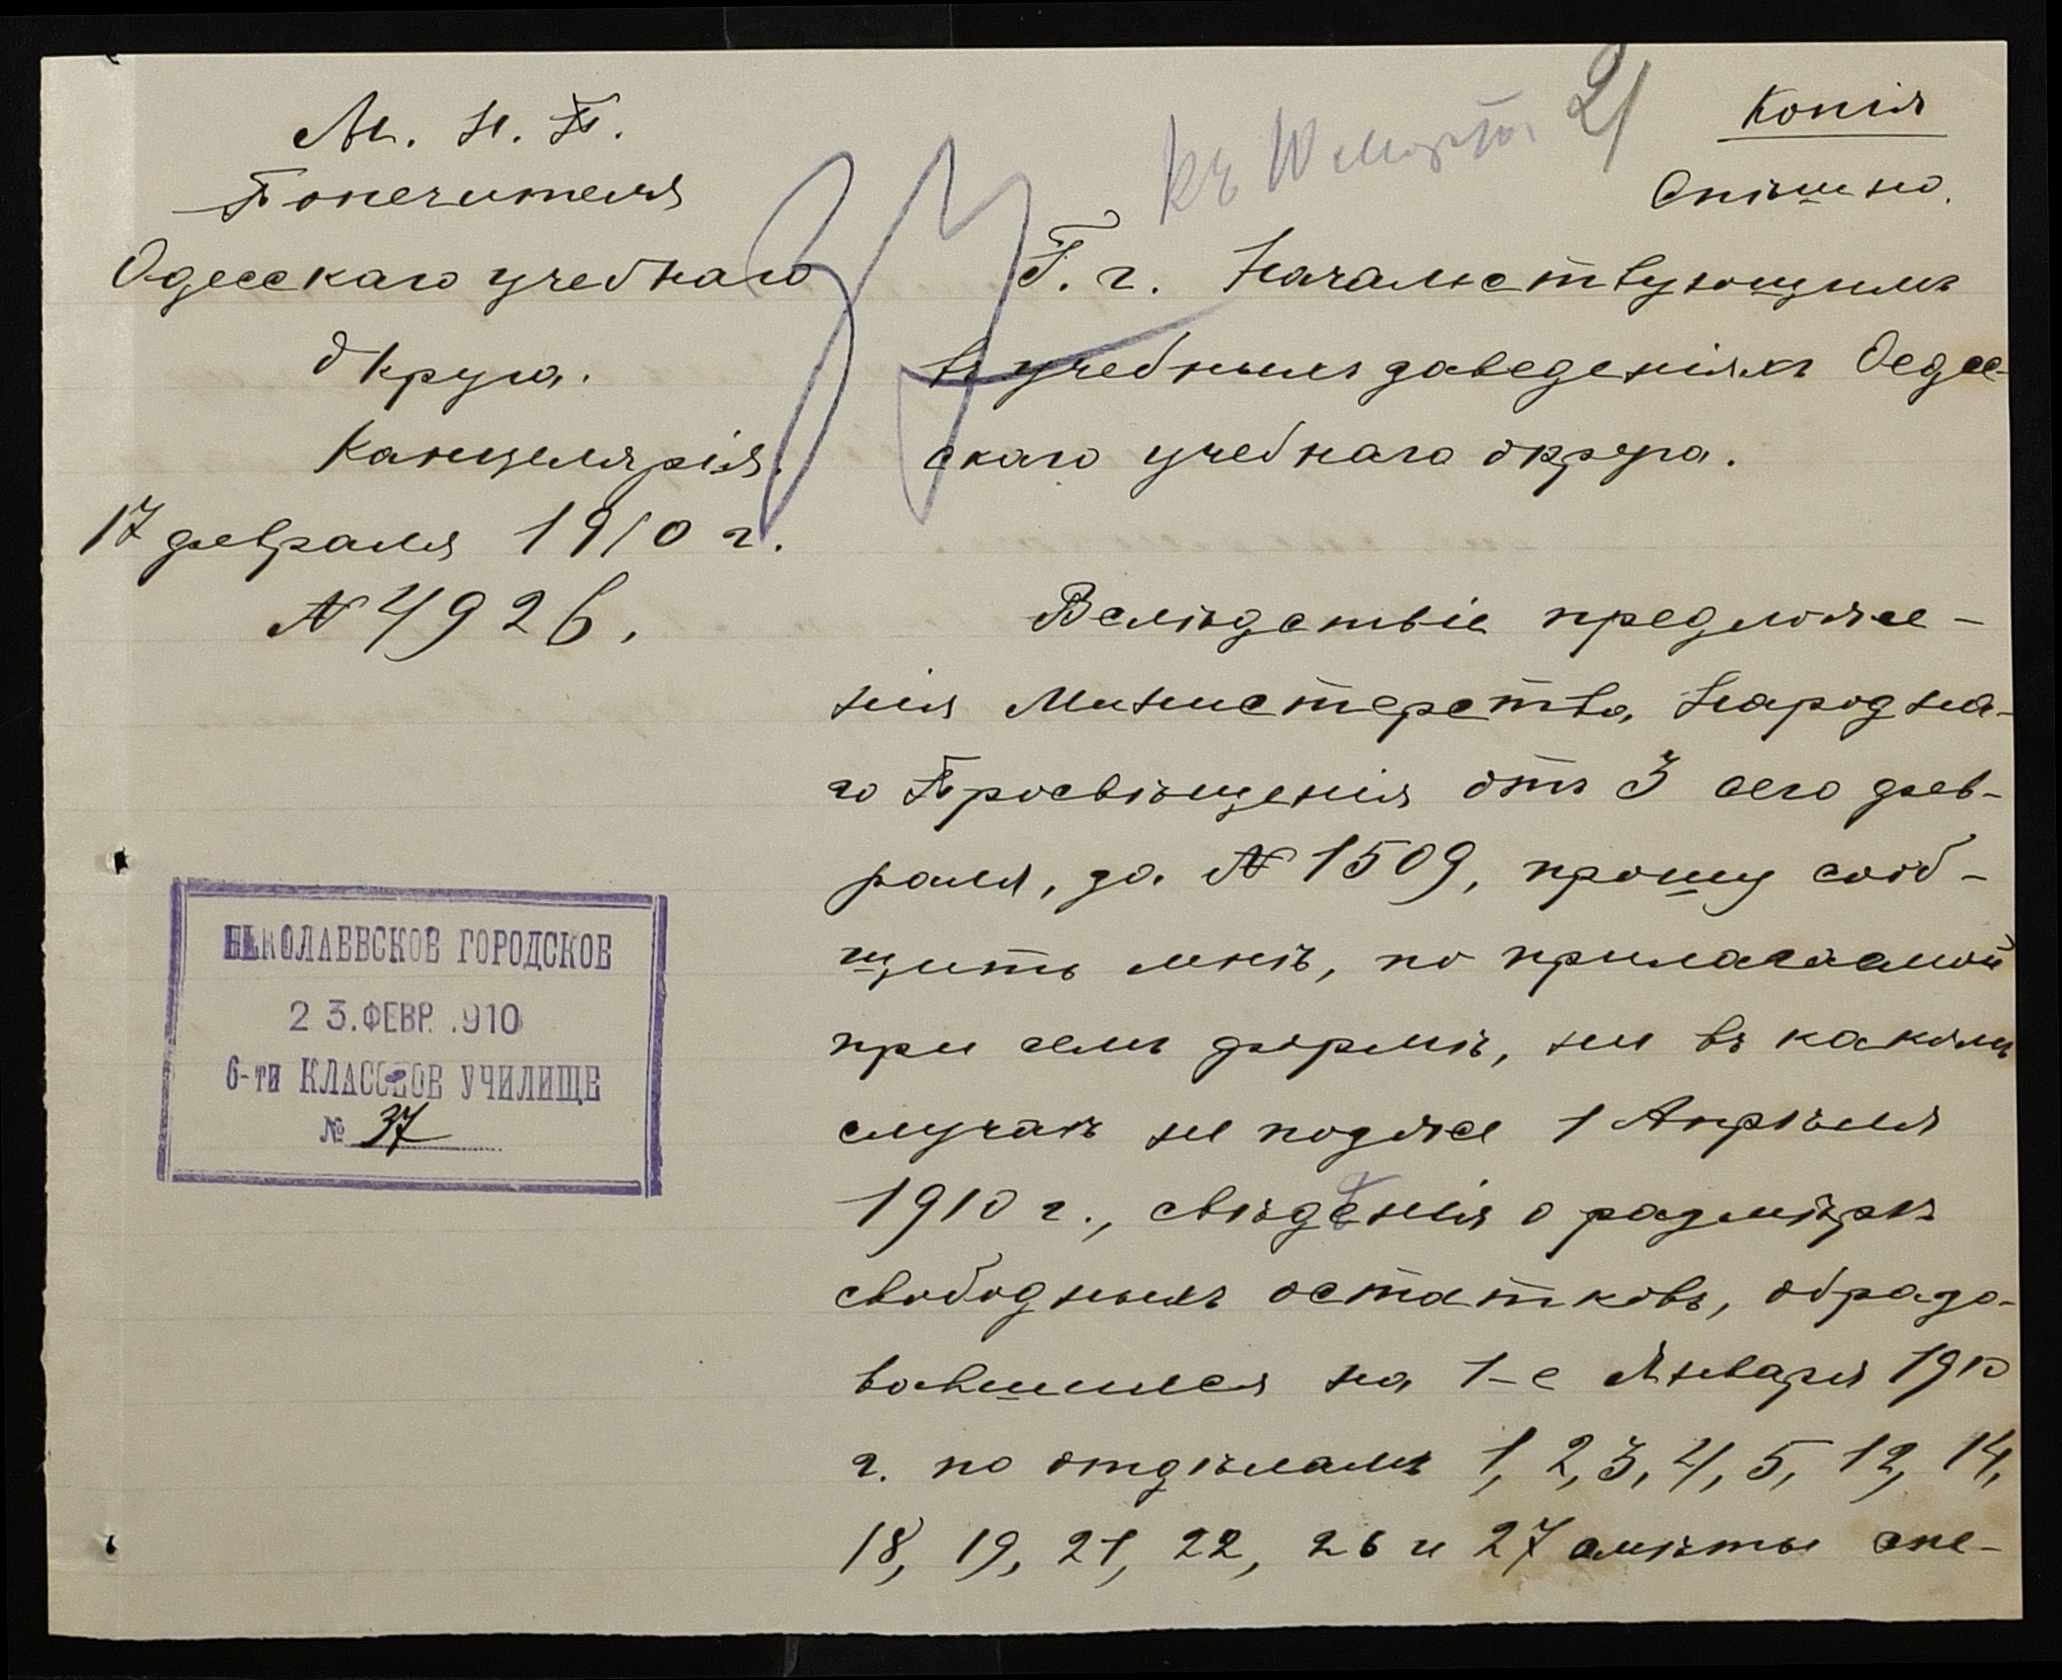 М. Н. П.
Попечителя
Одесскаго учебнаго
Округа.
Канцелярія.
17 февраля 1910 г.
№ 4926.
21
Копія
Спѣшно.
Г. г. Начальствующимъ
въ учебныхъ заведеніяхъ Одес-
скаго учебнаго округа.
Вслѣдствіе предложе-
нія Министерства Народна-
го Просвѣщенія отъ 3 сего фев-
раля, за № 1509, прошу сооб-
щить мнѣ, по прилагаемой
при семъ формѣ, ни въ какомъ
случаѣ не позже 1 Апрѣля
1910 г., свѣдѣнія о размѣрѣ
свободныхъ остатковъ, образо-
вавшихся на 1-е Января 1910
г. по отдѣламъ 1, 2, 3, 4, 5, 12, 14,
18, 19, 21, 22, 26 и 27 смѣты спе-
НИКОЛАЕВСКОЕ ГОРОДСКОЕ
23. ФЕВР. .910
6-ти КЛАССНОЕ УЧИЛИЩЕ
№ 37